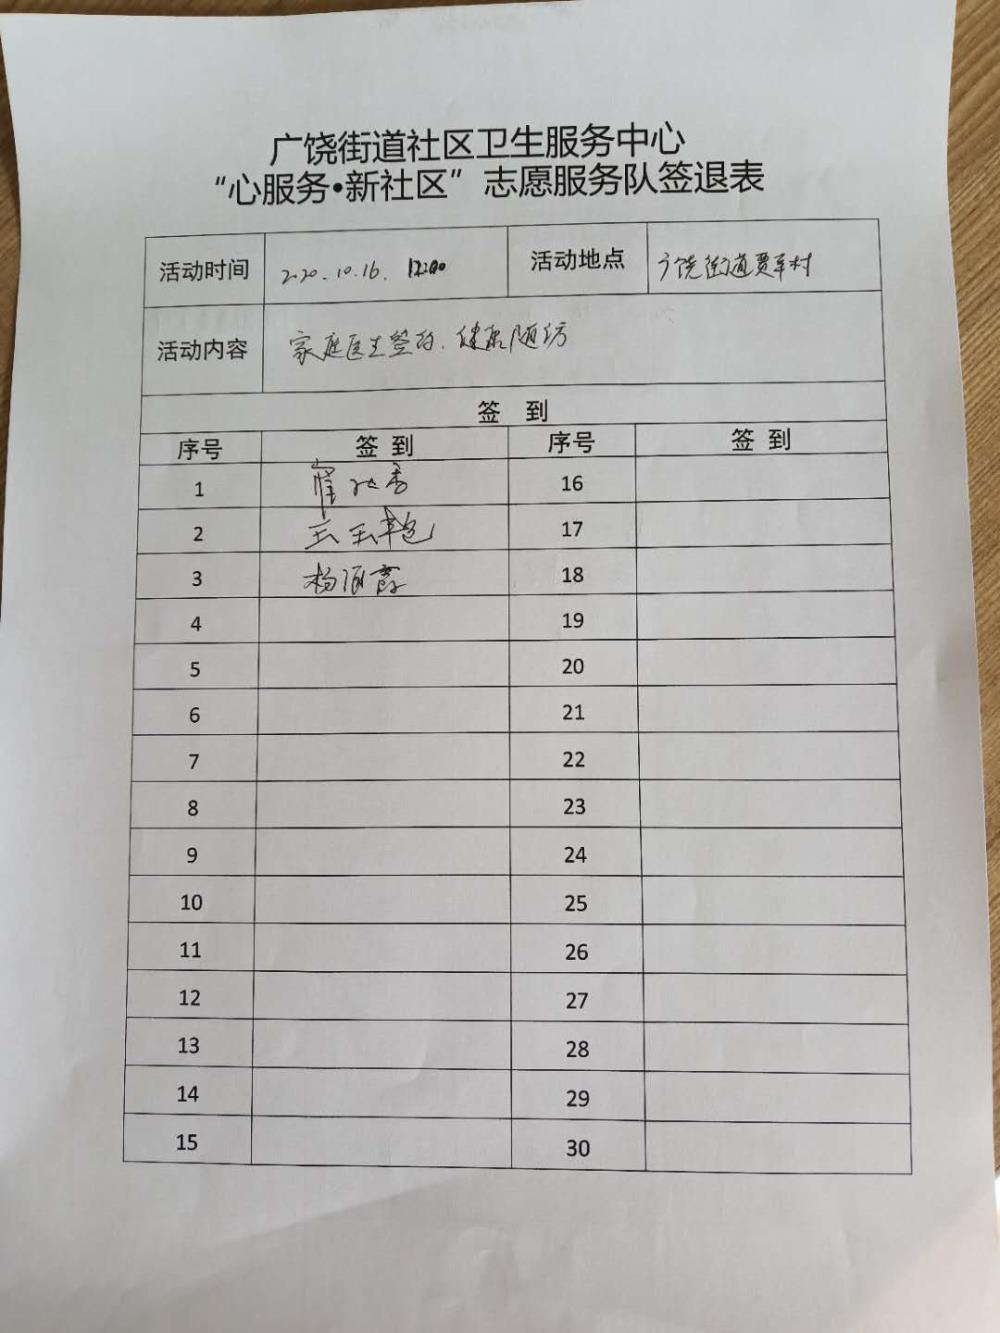 广饶街道社区卫生服务中心
“心服务•新社区”志愿服务队签退表
活动时间 2020.10.16. 12:00 活动地点 广饶街道贾车村
活动内容 家庭医生签约、健康随访
签 到
序号 签到 序号 签到
1 16
2 17
3 杨 霞 18
4 19
5 20
6 21
7 22
8 23
9 24
10 25
11 26
12 27
13 28
14 29
15 30